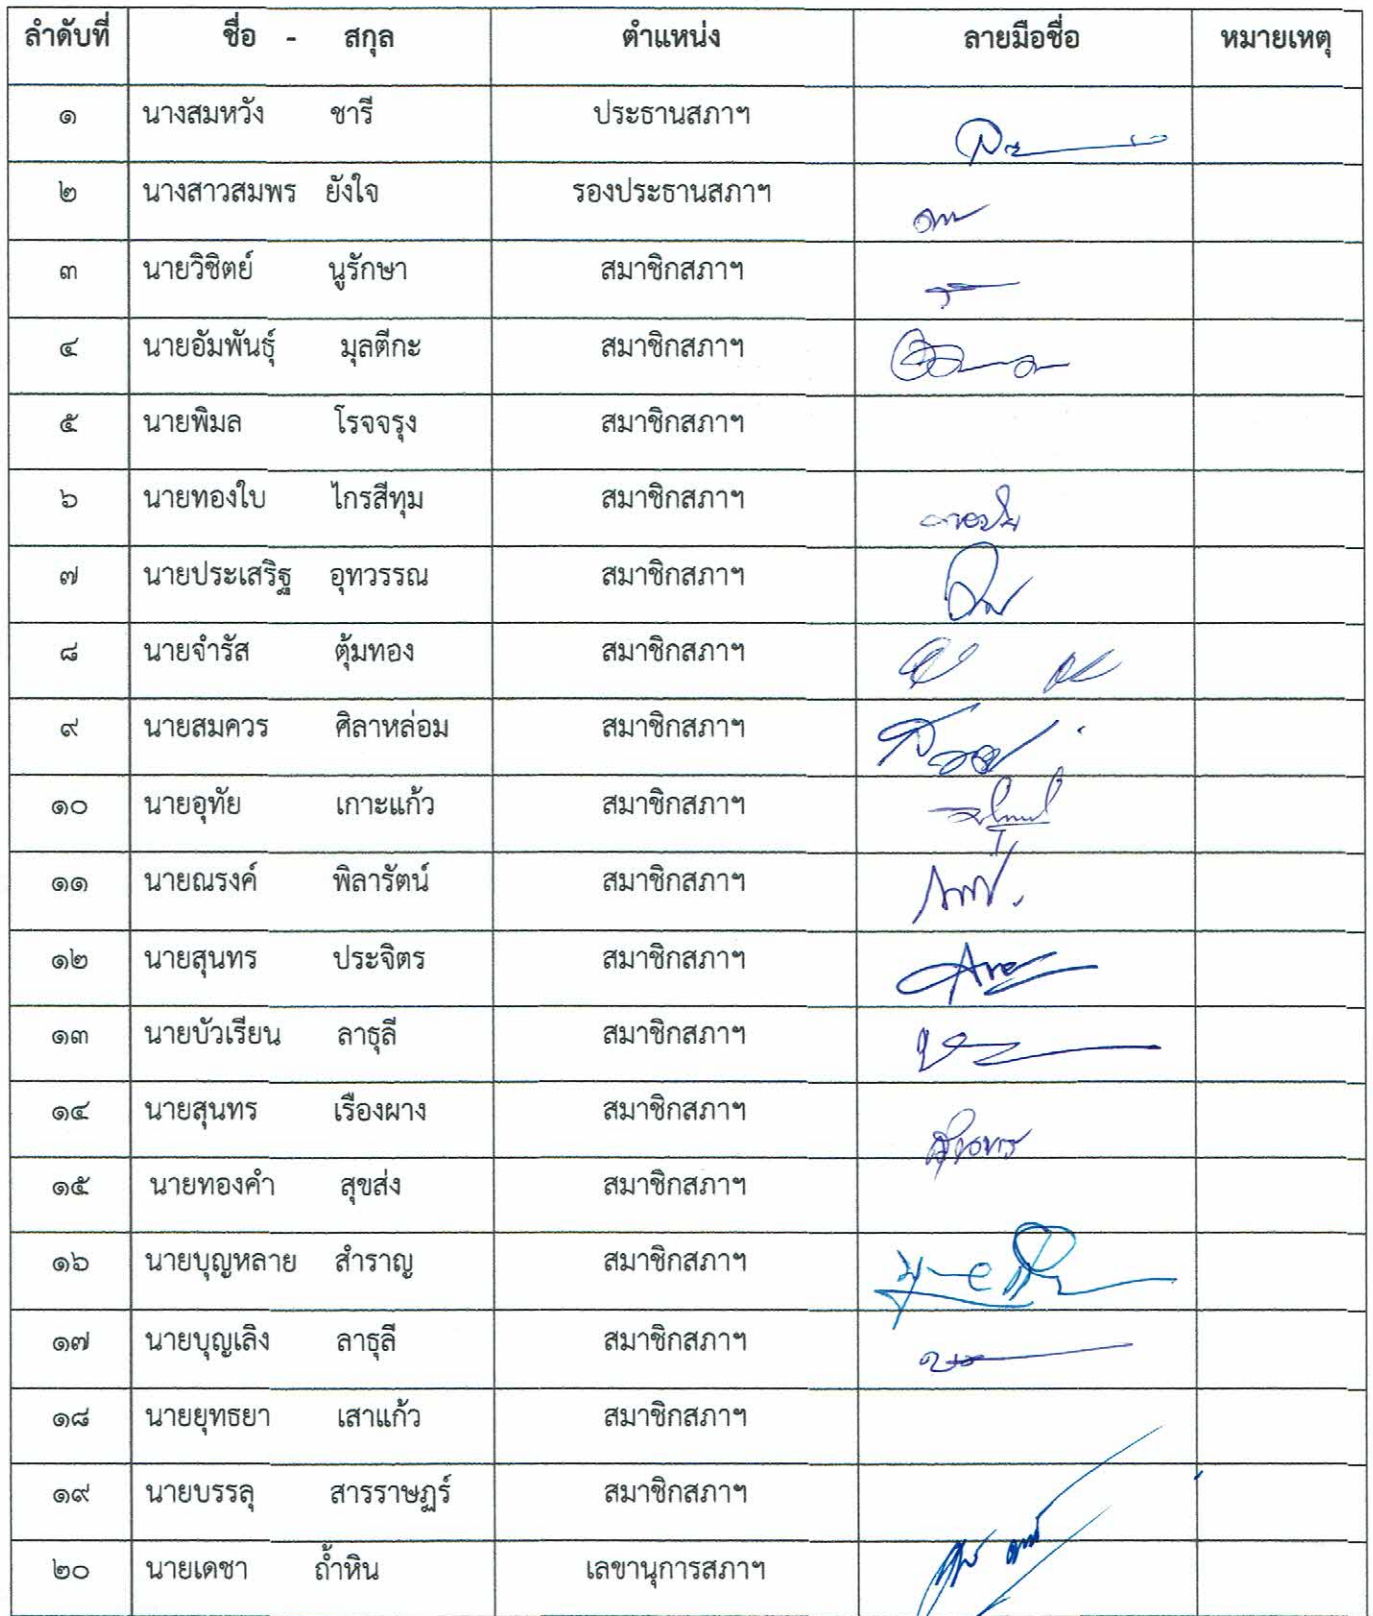 ลำดับที่ ชื่อ - สกุล ตำแหน่ง ลายมือชื่อ หมายเหตุ
๑ นางสมหวัง ชารี ประธานสภาฯ
๒ นางสาวสมพร ยังใจ รองประธานสภาฯ
๓ นายวิชิตย์ นูรักษา สมาชิกสภาฯ
๔ นายอัมพันธุ์ มุลตีกะ สมาชิกสภาฯ
๕ นายพิมล โรจจรุง สมาชิกสภาฯ
๖ นายทองใบ ไกรสีทุม สมาชิกสภาฯ
๗ นายประเสริฐ อุทวรรณ สมาชิกสภาฯ
๘ นายจำรัส ตุ้มทอง สมาชิกสภาฯ
๙ นายสมควร ศิลาหล่อม สมาชิกสภาฯ
๑๐ นายอุทัย เกาะแก้ว สมาชิกสภาฯ
๑๑ นายณรงค์ พิลารัตน์ สมาชิกสภาฯ
๑๒ นายสุนทร ประจิตร สมาชิกสภาฯ
๑๓ นายบัวเรียน ลาธุลี สมาชิกสภาฯ
๑๔ นายสุนทร เรืองผาง สมาชิกสภาฯ
๑๕ นายทองคำ สุขส่ง สมาชิกสภาฯ
๑๖ นายบุญหลาย สำราญ สมาชิกสภาฯ
๑๗ นายบุญเลิง ลาธุลี สมาชิกสภาฯ
๑๘ นายยุทธยา เสาแก้ว สมาชิกสภาฯ
๑๙ นายบรรลุ สารราษฎร์ สมาชิกสภาฯ
๒๐ นายเดชา ถ้ำหิน เลขานุการสภาฯ